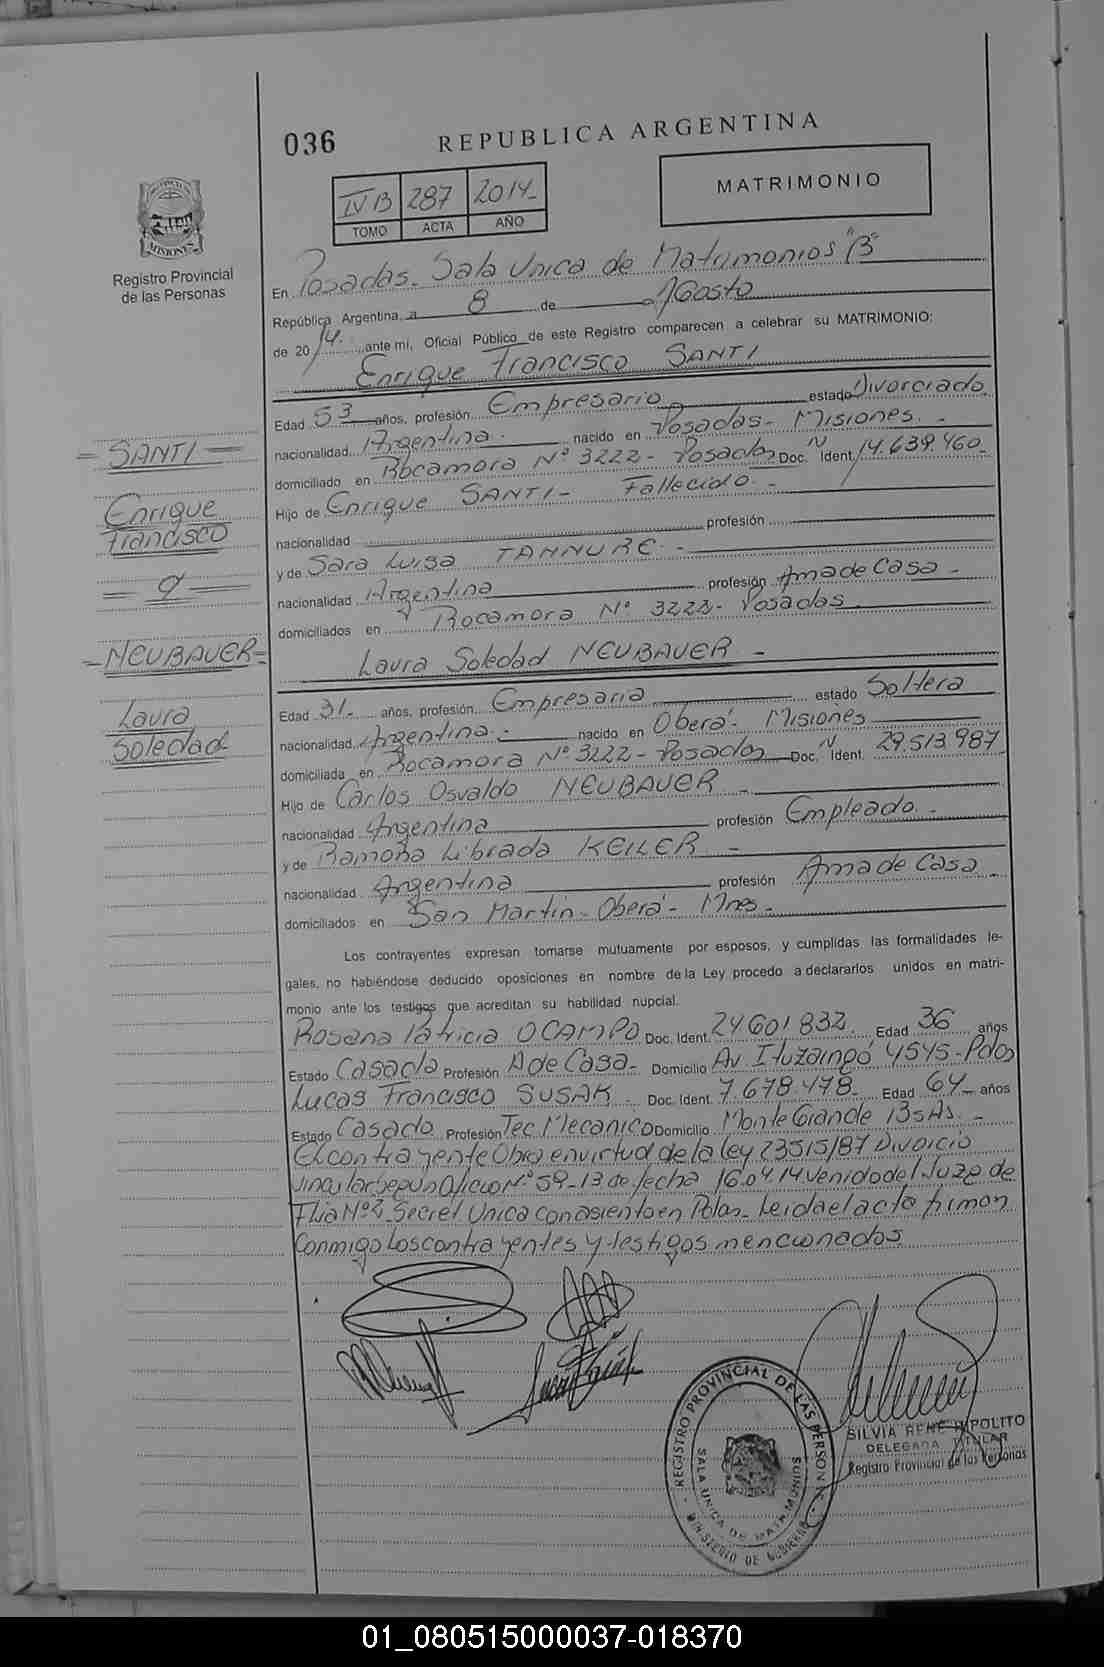 036
REPUBLICA ARGENTINA
MATRIMONIO
IV B 287 2014
TOMO ACTA AÑO
PROVINCIA DE MISIONES
Registro Provincial
de las Personas
En Posadas. Sala Unica de Matrimonios "B"
República Argentina, a 8 de Agosto
de 2014. ante mí, Oficial Público de este Registro comparecen a celebrar su MATRIMONIO:
Enrique Francisco SANTI
Edad 53 años, profesión Empresario estado Divorciado
nacionalidad Argentina.- nacido en Posadas- Misiones.-
domiciliado en Rocamora Nº 3222- Posadas Doc. N Ident 14.639.460
Hijo de Enrique SANTI- Fallecido.-
nacionalidad profesión
y de Sara Luisa TANNURE.-
nacionalidad Argentina profesión Ama de Casa-
domiciliados en Rocamora Nº 3222- Posadas
Laura Soledad NEUBAUER-
Edad 31.- años, profesión Empresaria estado Soltera
nacionalidad Argentina.- nacido en Oberá- Misiones
domiciliada en Rocamora Nº 3222- Posadas Doc. N Ident. 29.513.987
Hijo de Carlos Osvaldo NEUBAUER-
nacionalidad Argentina profesión Empleado-
y de Ramona Librada KEILER-
nacionalidad Argentina profesión Ama de Casa-
domiciliados en San Martin- Oberá- Mnes-
Los contrayentes expresan tomarse mutuamente por esposos, y cumplidas las formalidades le-
gales, no habiéndose deducido oposiciones en nombre de la Ley procedo a declararlos unidos en matri-
monio ante los testigos que acreditan su habilidad nupcial.
Rosana Patricia OCAMPO Doc. Ident. 24601832. Edad 36 años
Estado Casada Profesión A de Casa- Domicilio Av. Ituzaingó 4545-Pdas
Lucas Francisco SUSAK- Doc. Ident. 7.678.478- Edad 64- años
Estado Casado Profesión Tec. Mecanico Domicilio Monte Grande BsAs.-
El contrayente Obro en virtud de la ley 23515/87 Divorcio
vincular segun Oficio Nº 59-13 de fecha 16.04.14 venido del Juzg de
Flia Nº 2 Secret Unica con asiento en Pdas- Leida el acta firman
conmigo Los contrayentes y testigos mencionados
-SANTI-
Enrique
Francisco
-NEUBAUER-
Laura
Soledad
REGISTRO PROVINCIAL DE LAS PERSONAS
SALA UNICA DE MATRIMONIOS
MINISTERIO DE GOBIERNO
SILVIA RENE HIPOLITO
DELEGADA TITULAR
Registro Provincial de las Personas
01_080515000037-018370